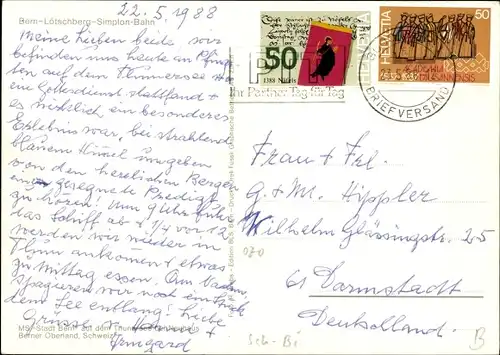 22.5.1988
Bern-Lötschberg-Simplon-Bahn
Meine lieben beide wir
befinden uns heute an Pfing
ten auf dem Thunersee wo
ein Gottesdienst stattfand +
es wirklich ein besonderes
Erlebnis war, bei strahlend
blauem Himmel umgeben
von den herrlichen Bergen
eine gesegnete Predigt
zu hören! Um 9 Uhr fuhr
das Schiff ab + 1/4 vor 12
werden wir wieder in
Thun ankommen + etwas
zu Mittag essen.
spazieren wir noch ein Stück
dem See entlang! Liebe
Grüsse
Irmgard
MS «Stadt Bern» auf dem Thunersee
Berner Oberland, Schweiz
50
1388 Näfels
HELVETIA
HELVETIA
50
Ihr Partner Tag für Tag
BRIEFVERSAND
Frau + Frl.
G. + M. Hippler
Wilhelm Glässingstr. 25
61 Darmstadt
Deutschland.
Sch-Bi
B